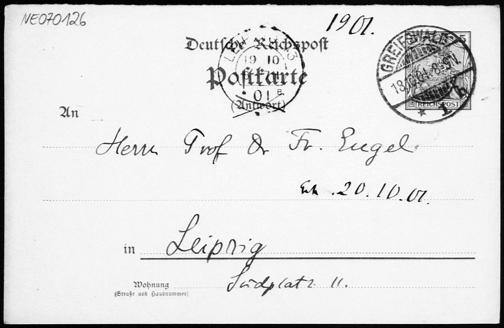 NE070126
1901.
Deutsche Reichspost
Postkarte
(Antwort)
19 10
01
GREIFSWALD
REICHSPOST
An
Herrn Prof Dr Fr. Engel
Erh. 20.10.01.
in Leipzig
Wohnung
(Straße und Hausnummer)
Südplatz 11.